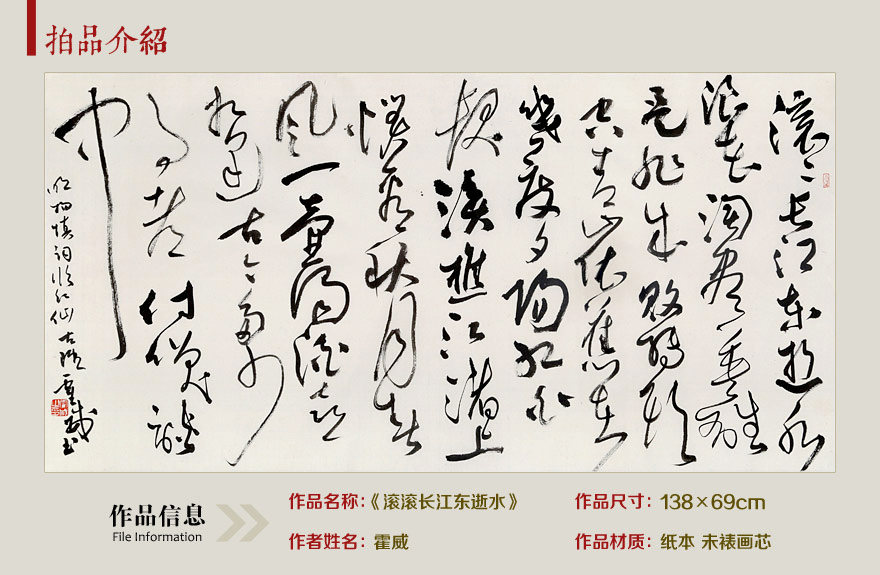 拍品介紹
滚〻长江东逝水
浪花淘尽英雄
是非成败转头
空青山依旧在
几度夕阳红白
发渔樵江渚上
惯看秋月春
风一壶浊酒喜
相逢古今多少
事都付笑谈
中
明杨慎词临江仙 霍威书
作品信息
File Information
作品名称：《滚滚长江东逝水》
作品尺寸：138×69cm
作者姓名：霍威
作品材质：纸本 未裱画芯